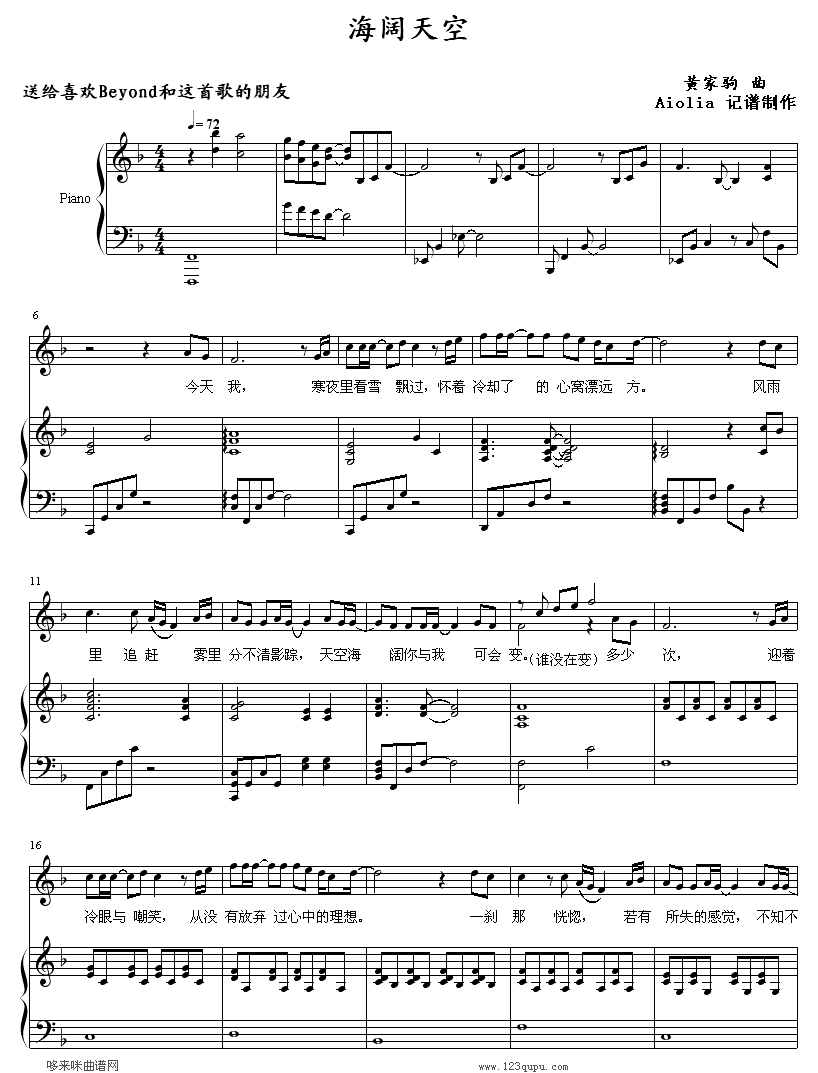 海阔天空
送给喜欢Beyond和这首歌的朋友
黄家驹 曲
Aiolia 记谱制作
= 72
Piano
6
今天 我， 寒夜里看雪 飘过，怀着 冷却了 的 心窝漂远 方。 风雨
11
里 追 赶 雾里 分不清影踪，天空海 阔你与我 可会 变。(谁没在变) 多少 次， 迎着
16
冷眼与 嘲笑， 从没 有放弃 过心中的理想。 一刹 那 恍惚， 若有 所失的感觉，不知不
哆来咪曲谱网
www.123qupu.com